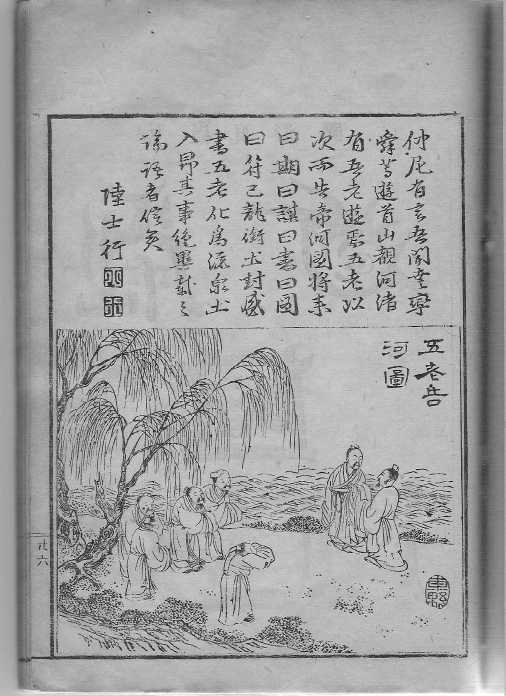 仲尼有言吾聞堯率
舜等遊首山觀河渚
有五老遊焉五老以
次而告帝河圖將來
曰期曰謀曰書曰圖
曰符已龍銜玉封盛
書五老化為流星上
入昴其事絕異載之
論語者信矣
陸士行
五老告
河圖
廿六